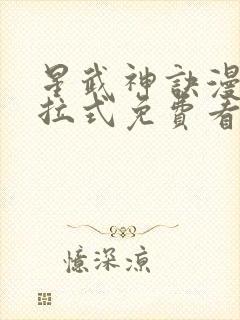 星武神訣漫
拉式免費看
憶深涼